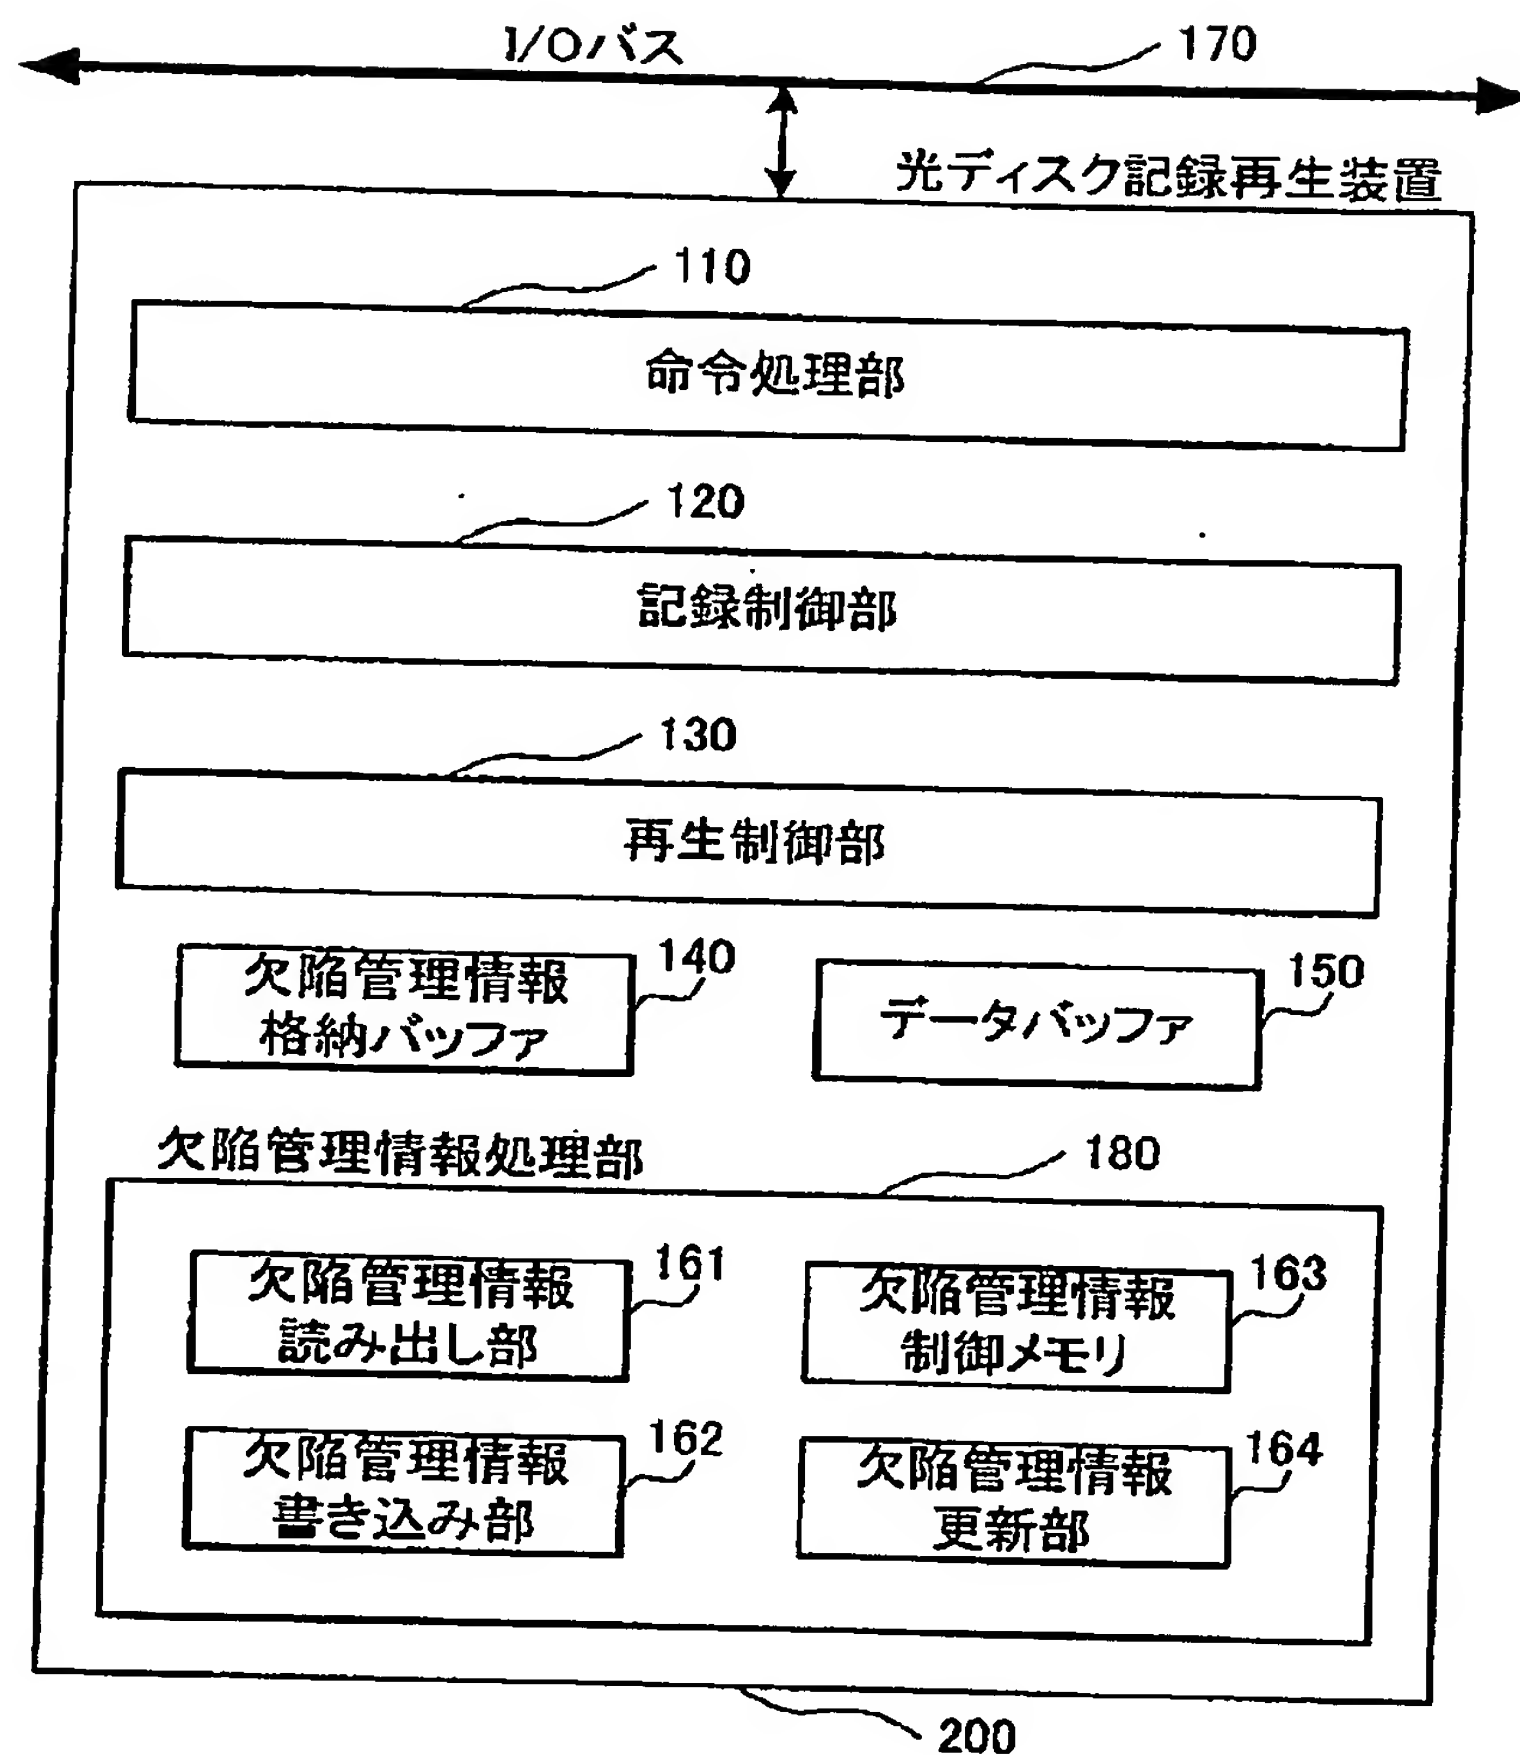 I/Oバス
170
光ディスク記録再生装置
110
命令処理部
120
記録制御部
130
再生制御部
欠陥管理情報
格納バッファ
140
データバッファ
150
欠陥管理情報処理部
180
欠陥管理情報
読み出し部
161
欠陥管理情報
制御メモリ
163
欠陥管理情報
書き込み部
162
欠陥管理情報
更新部
164
200